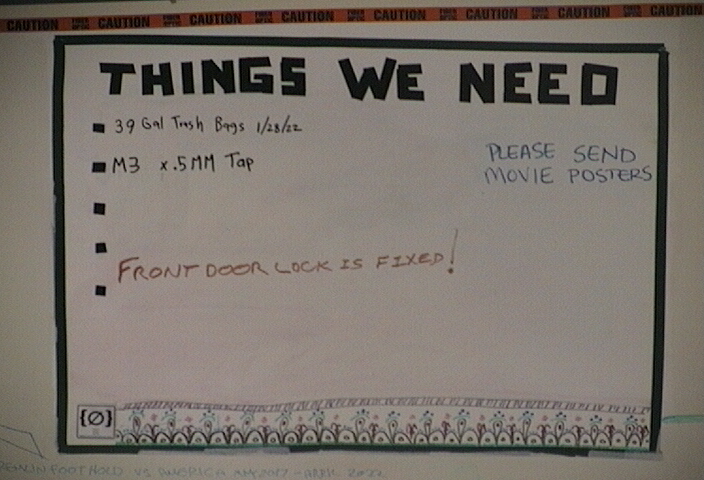 CAUTION CAUTION CAUTION CAUTION CAUTION CAUTION CAUTION CAUTION
THINGS WE NEED
39 Gal Trash Bags 1/28/22
M3 x.5MM Tap
PLEASE SEND
MOVIE POSTERS
FRONT DOOR LOCK IS FIXED!
{Ø}
FOOT HOLD VS AMERICA 2017 - APRIL 2022